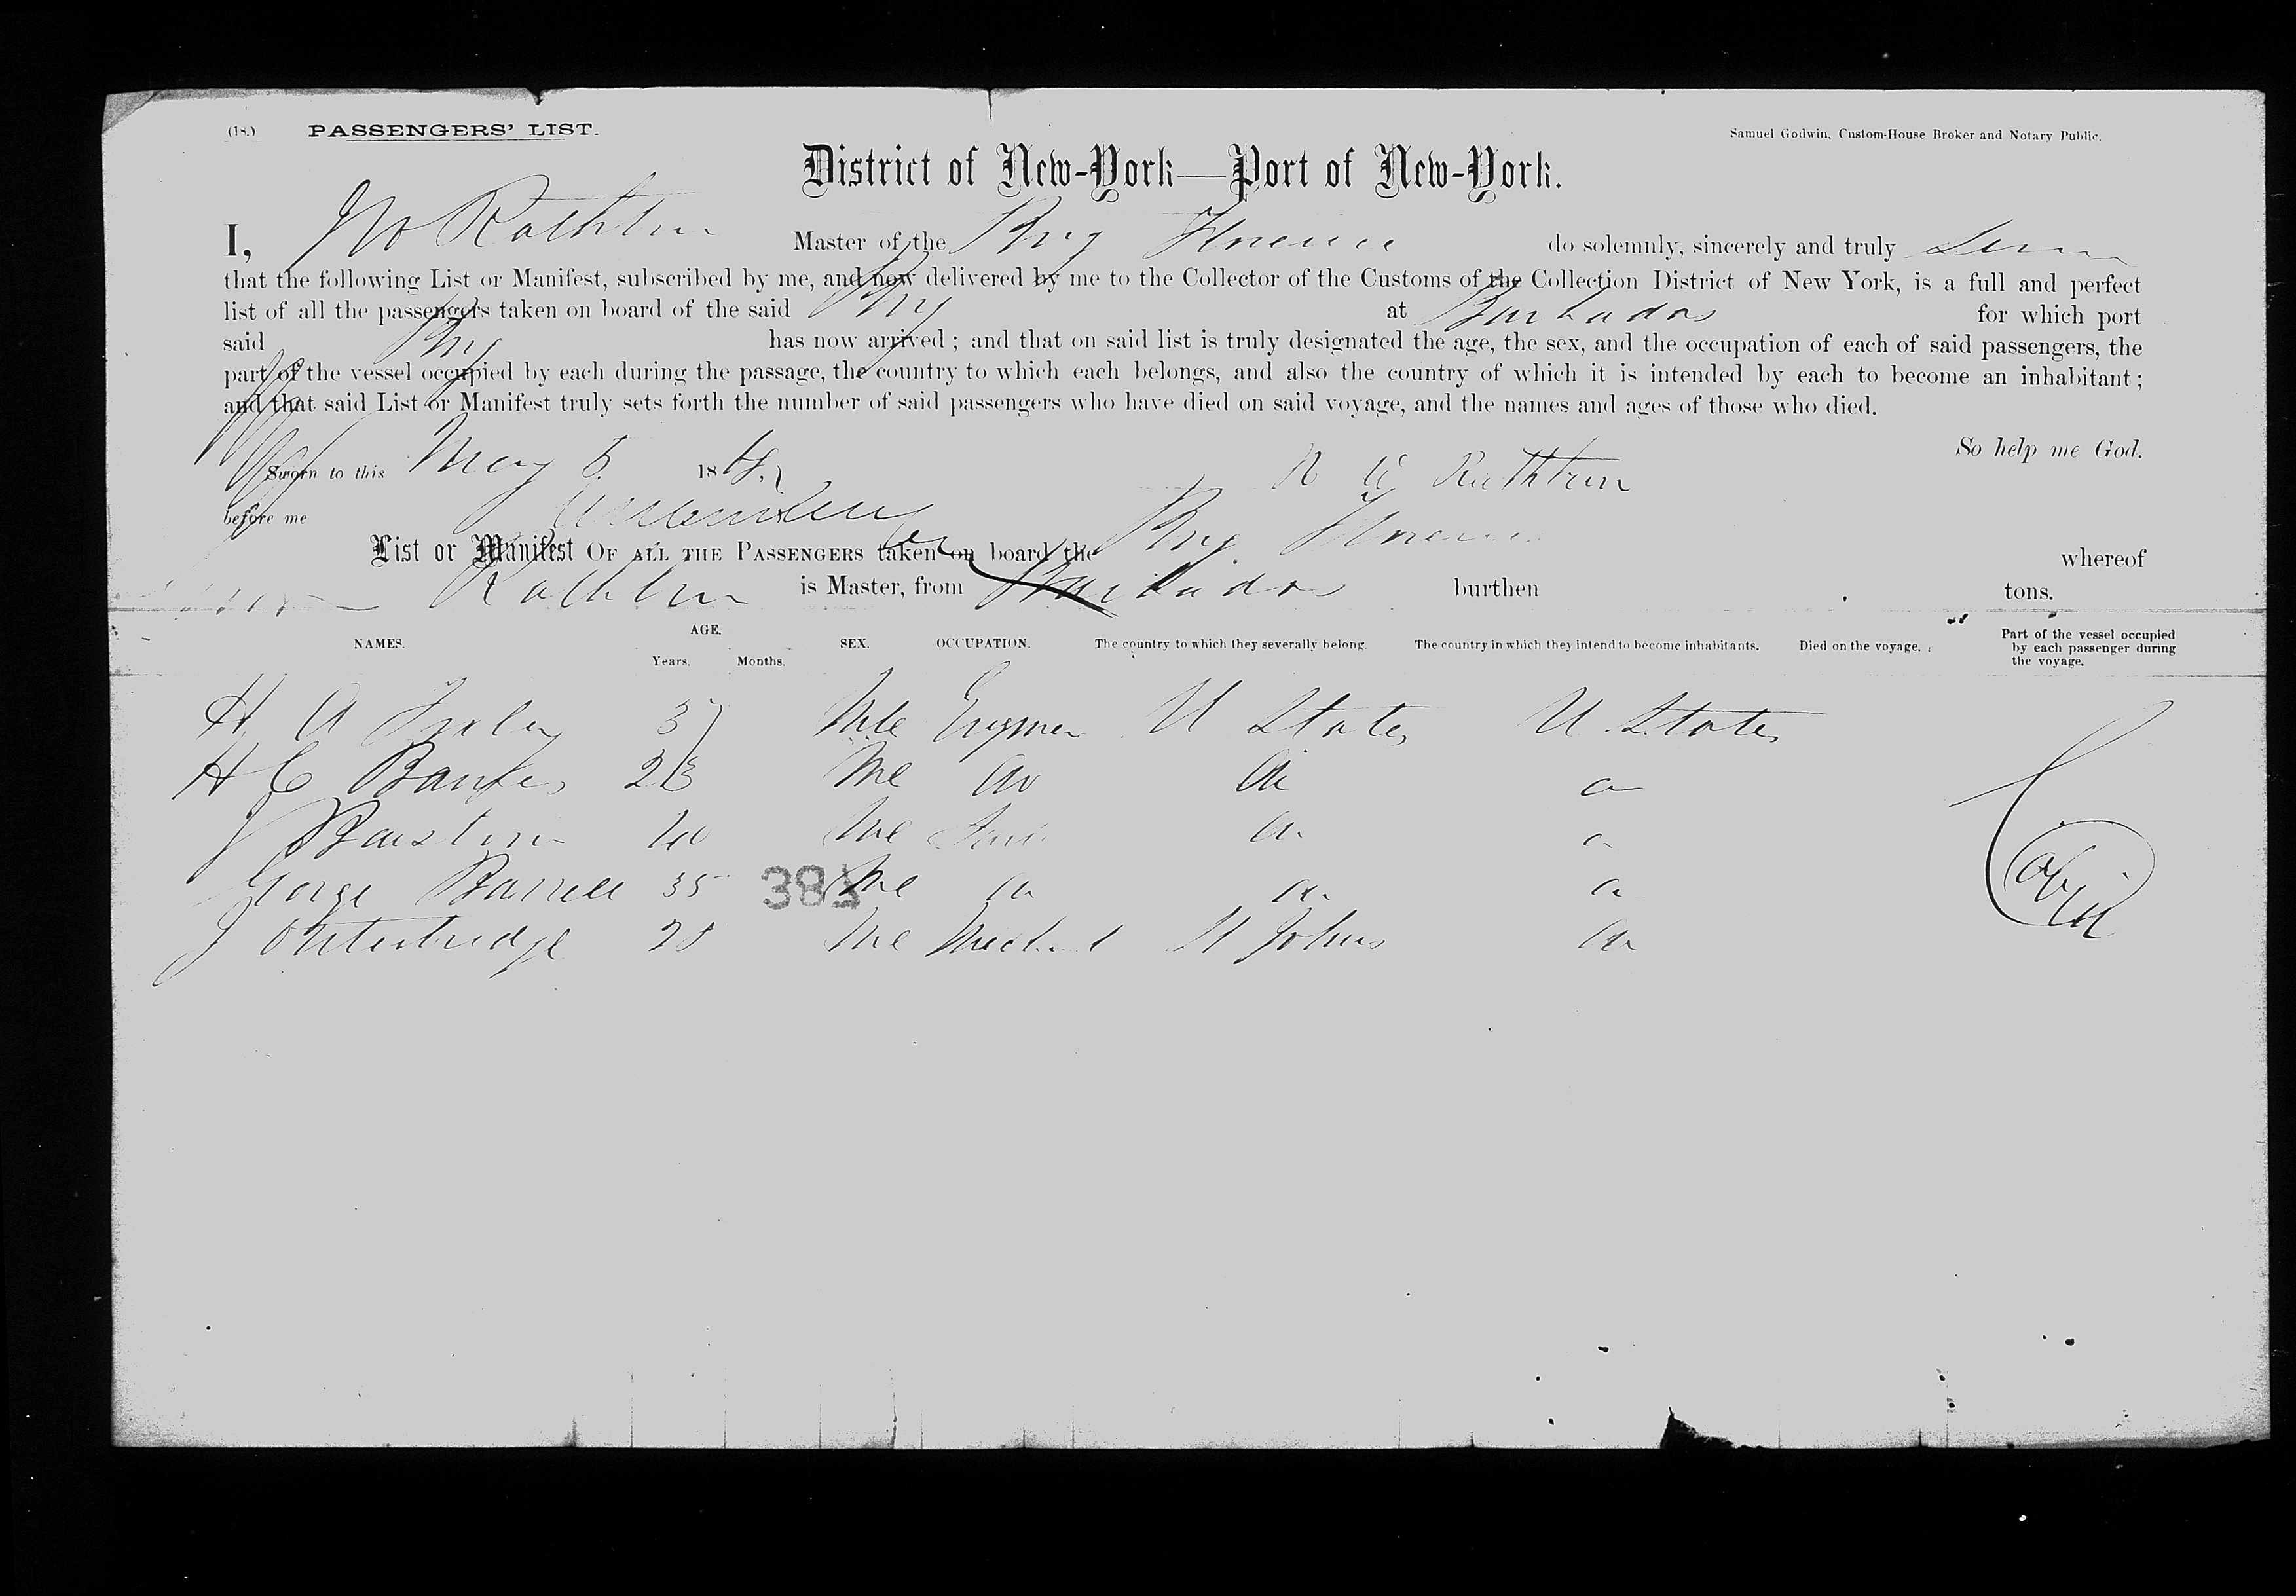 (18.) PASSENGERS' LIST.
Samuel Godwin, Custom-House Broker and Notary Public.
District of New-York—Port of New-York.
I, Rathbun Master of the Brig Florence do solemnly, sincerely and truly
that the following List or Manifest, subscribed by me, and now delivered by me to the Collector of the Customs of the Collection District of New York, is a full and perfect
list of all the passengers taken on board of the said Brig at Barbados for which port
said Brig has now arrived; and that on said list is truly designated the age, the sex, and the occupation of each of said passengers, the
part of the vessel occupied by each during the passage, the country to which each belongs, and also the country of which it is intended by each to become an inhabitant;
and that said List or Manifest truly sets forth the number of said passengers who have died on said voyage, and the names and ages of those who died.
So help me God.
Sworn to this May 5 186
Rathbun
before me
List or Manifest OF ALL THE PASSENGERS taken on board the Brig Florence whereof
Rathbun is Master, from Barbados burthen tons.
NAMES. AGE. Years. Months. SEX. OCCUPATION. The country to which they severally belong. The country in which they intend to become inhabitants. Died on the voyage. Part of the vessel occupied by each passenger during the voyage.
H A 37 Mle U States U States
H C 23 Me
J 40 Me
George Barrell 35 Me
J Outerbridge 28 Me St Johns
Cabin